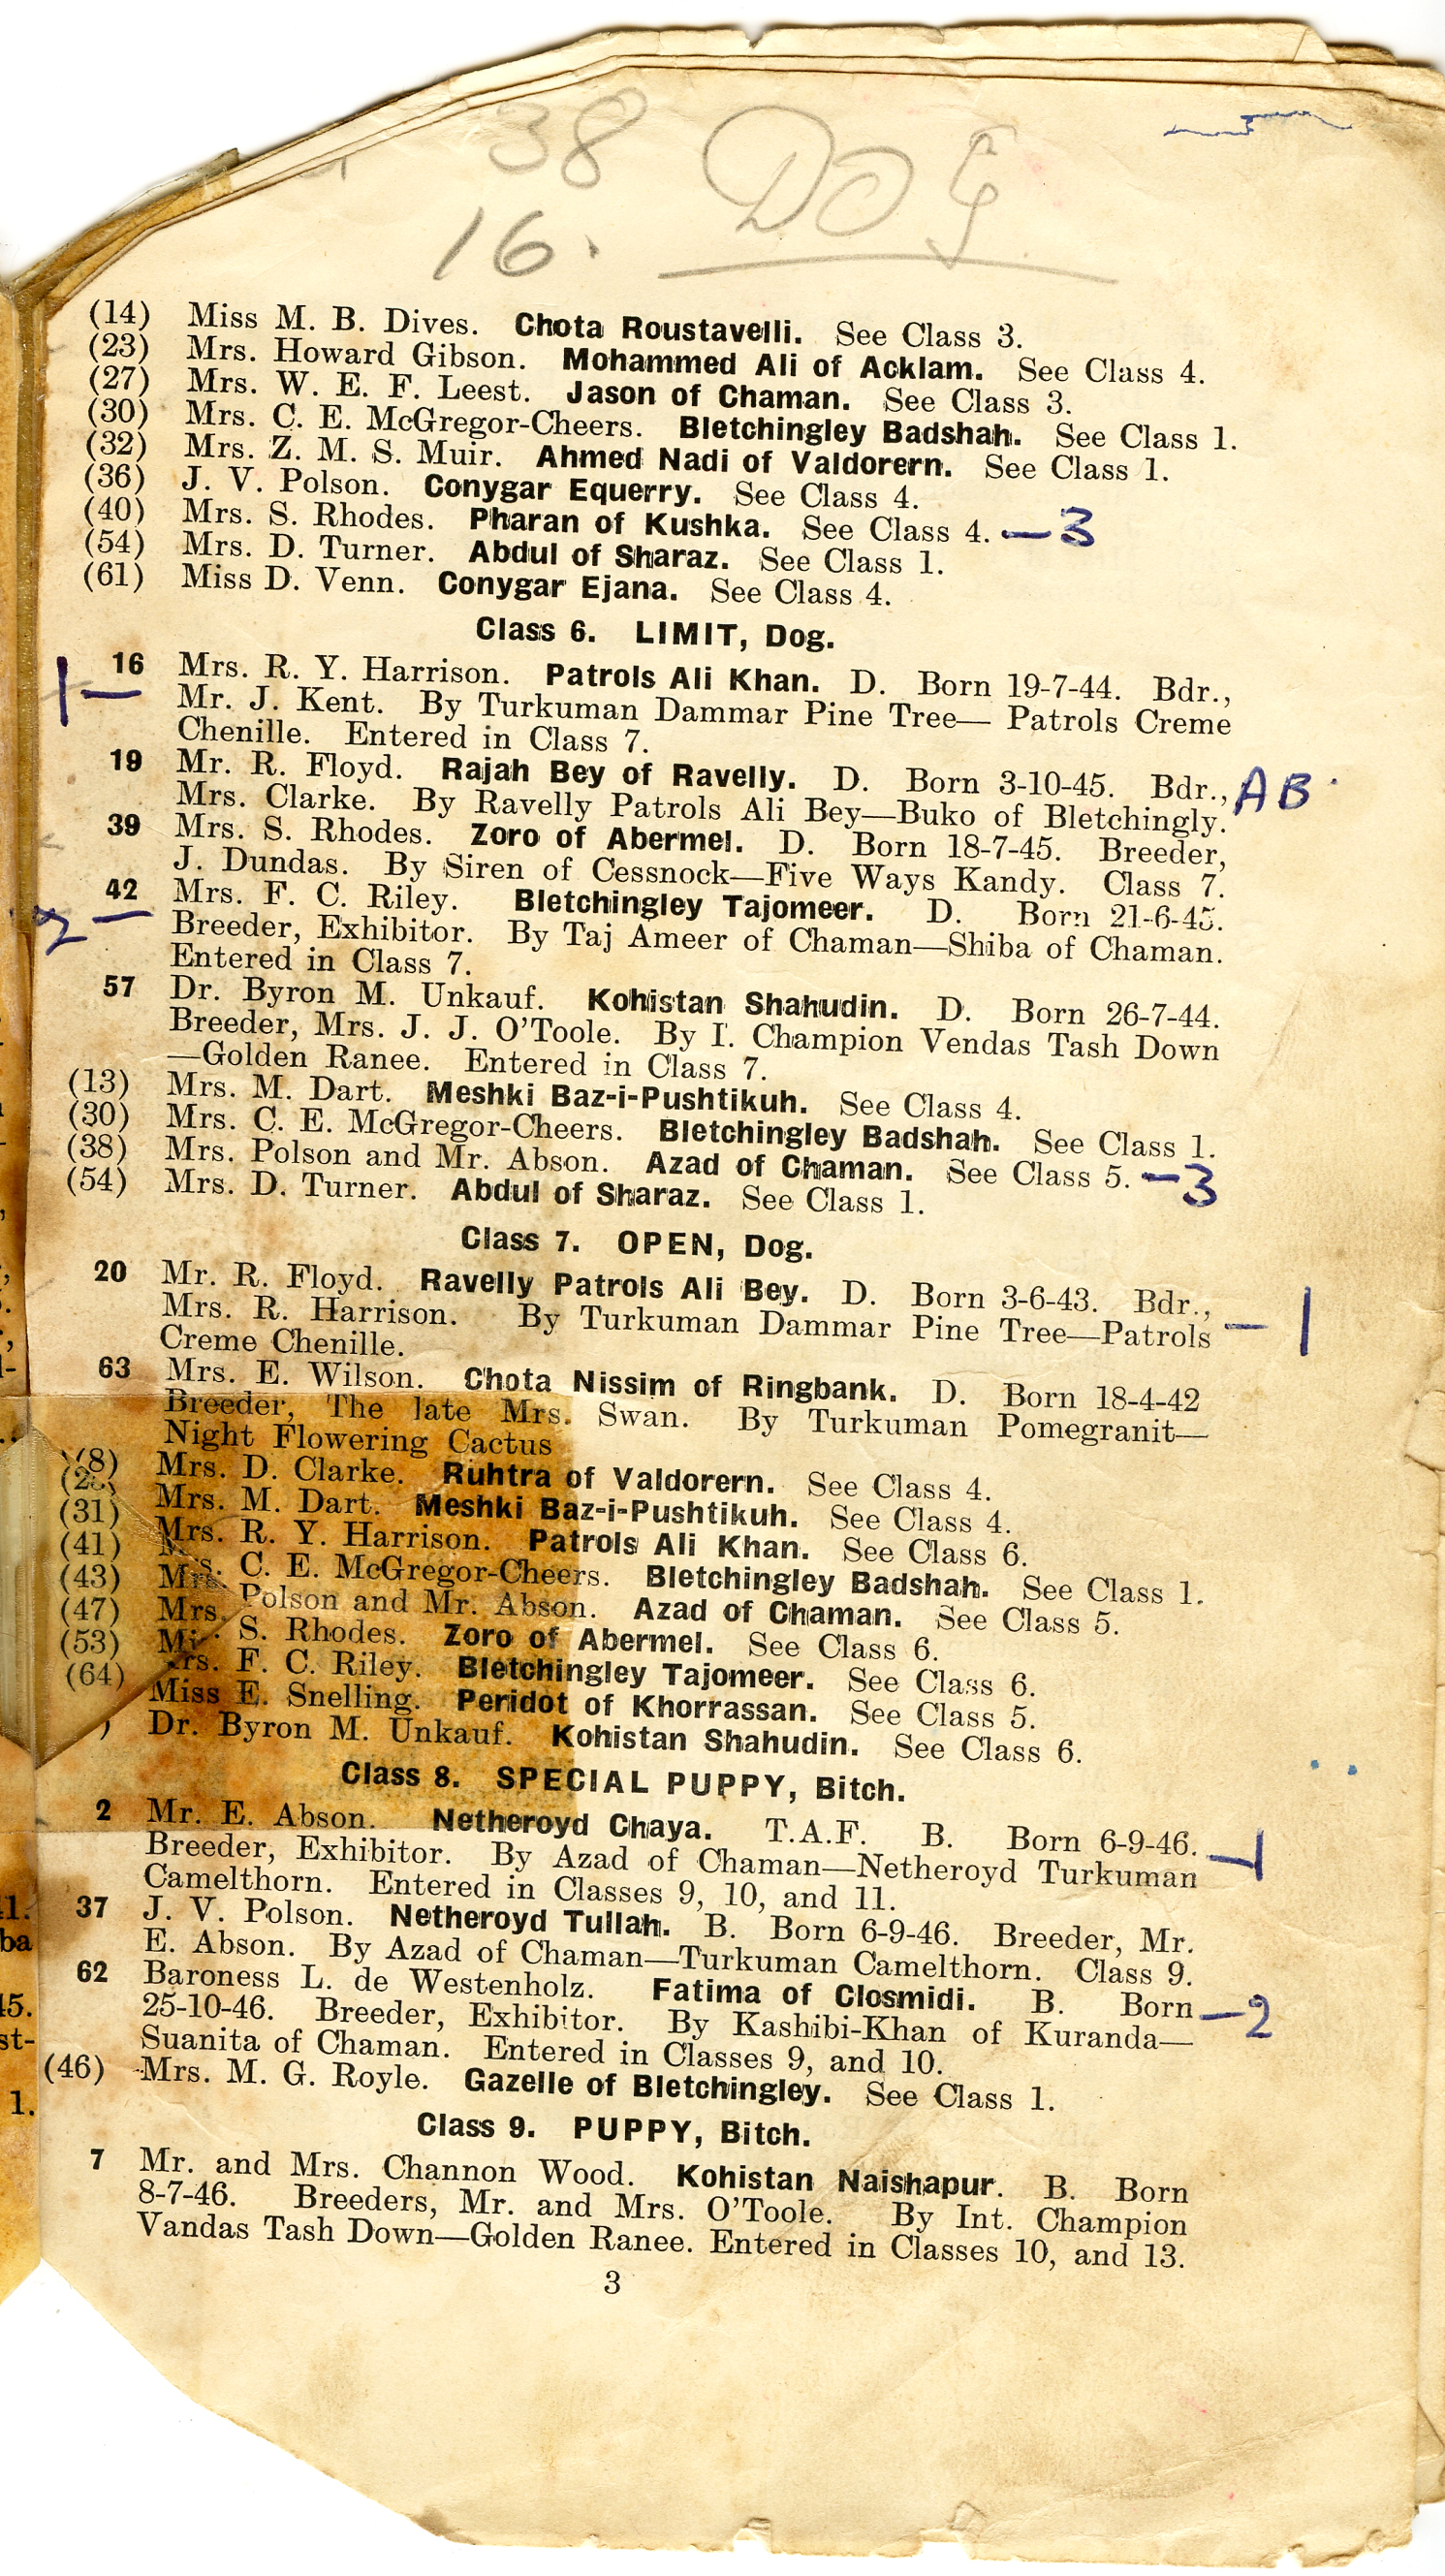 38 DOG
16.
(14) Miss M. B. Dives. Chota Roustavelli. See Class 3.
(23) Mrs. Howard Gibson. Mohammed Ali of Acklam. See Class 4.
(27) Mrs. W. E. F. Leest. Jason of Chaman. See Class 3.
(30) Mrs. C. E. McGregor-Cheers. Bletchingley Badshah. See Class 1.
(32) Mrs. Z. M. S. Muir. Ahmed Nadi of Valdorern. See Class 1.
(36) J. V. Polson. Conygar Equerry. See Class 4.
(40) Mrs. S. Rhodes. Pharan of Kushka. See Class 4. —3
(54) Mrs. D. Turner. Abdul of Sharaz. See Class 1.
(61) Miss D. Venn. Conygar Ejana. See Class 4.
Class 6. LIMIT, Dog.
16 Mrs. R. Y. Harrison. Patrols Ali Khan. D. Born 19-7-44. Bdr.,
1— Mr. J. Kent. By Turkuman Dammar Pine Tree— Patrols Creme
Chenille. Entered in Class 7.
19 Mr. R. Floyd. Rajah Bey of Ravelly. D. Born 3-10-45. Bdr., AB
Mrs. Clarke. By Ravelly Patrols Ali Bey—Buko of Bletchingly.
39 Mrs. S. Rhodes. Zoro of Abermel. D. Born 18-7-45. Breeder,
J. Dundas. By Siren of Cessnock—Five Ways Kandy. Class 7.
42 Mrs. F. C. Riley. Bletchingley Tajomeer. D. Born 21-6-45.
2— Breeder, Exhibitor. By Taj Ameer of Chaman—Shiba of Chaman.
Entered in Class 7.
57 Dr. Byron M. Unkauf. Kohistan Shahudin. D. Born 26-7-44.
Breeder, Mrs. J. J. O'Toole. By I. Champion Vendas Tash Down
—Golden Ranee. Entered in Class 7.
(13) Mrs. M. Dart. Meshki Baz-i-Pushtikuh. See Class 4.
(30) Mrs. C. E. McGregor-Cheers. Bletchingley Badshah. See Class 1.
(38) Mrs. Polson and Mr. Abson. Azad of Chaman. See Class 5. —3
(54) Mrs. D. Turner. Abdul of Sharaz. See Class 1.
Class 7. OPEN, Dog.
20 Mr. R. Floyd. Ravelly Patrols Ali Bey. D. Born 3-6-43. Bdr.,
Mrs. R. Harrison. By Turkuman Dammar Pine Tree—Patrols —1
Creme Chenille.
63 Mrs. E. Wilson. Chota Nissim of Ringbank. D. Born 18-4-42
Breeder, The late Mrs. Swan. By Turkuman Pomegranit—
Night Flowering Cactus
(8) Mrs. D. Clarke. Ruhtra of Valdorern. See Class 4.
Mrs. M. Dart. Meshki Baz-i-Pushtikuh. See Class 4.
(31) Mrs. R. Y. Harrison. Patrols Ali Khan. See Class 6.
(41) C. E. McGregor-Cheers. Bletchingley Badshah. See Class 1.
(43) Mrs. Polson and Mr. Abson. Azad of Chaman. See Class 5.
(47) Mrs. S. Rhodes. Zoro of Abermel. See Class 6.
(53) F. C. Riley. Bletchingley Tajomeer. See Class 6.
(64) Miss E. Snelling. Peridot of Khorrassan. See Class 5.
) Dr. Byron M. Unkauf. Kohistan Shahudin. See Class 6.
Class 8. SPECIAL PUPPY, Bitch.
2 Mr. E. Abson. Netheroyd Chaya. T.A.F. B. Born 6-9-46.
Breeder, Exhibitor. By Azad of Chaman—Netheroyd Turkuman —1
Camelthorn. Entered in Classes 9, 10, and 11.
37 J. V. Polson. Netheroyd Tullah. B. Born 6-9-46. Breeder, Mr.
E. Abson. By Azad of Chaman—Turkuman Camelthorn. Class 9.
62 Baroness L. de Westenholz. Fatima of Closmidi. B. Born —2
25-10-46. Breeder, Exhibitor. By Kashibi-Khan of Kuranda—
Suanita of Chaman. Entered in Classes 9, and 10.
(46) Mrs. M. G. Royle. Gazelle of Bletchingley. See Class 1.
Class 9. PUPPY, Bitch.
7 Mr. and Mrs. Channon Wood. Kohistan Naishapur. B. Born
8-7-46. Breeders, Mr. and Mrs. O'Toole. By Int. Champion
Vandas Tash Down—Golden Ranee. Entered in Classes 10, and 13.
3